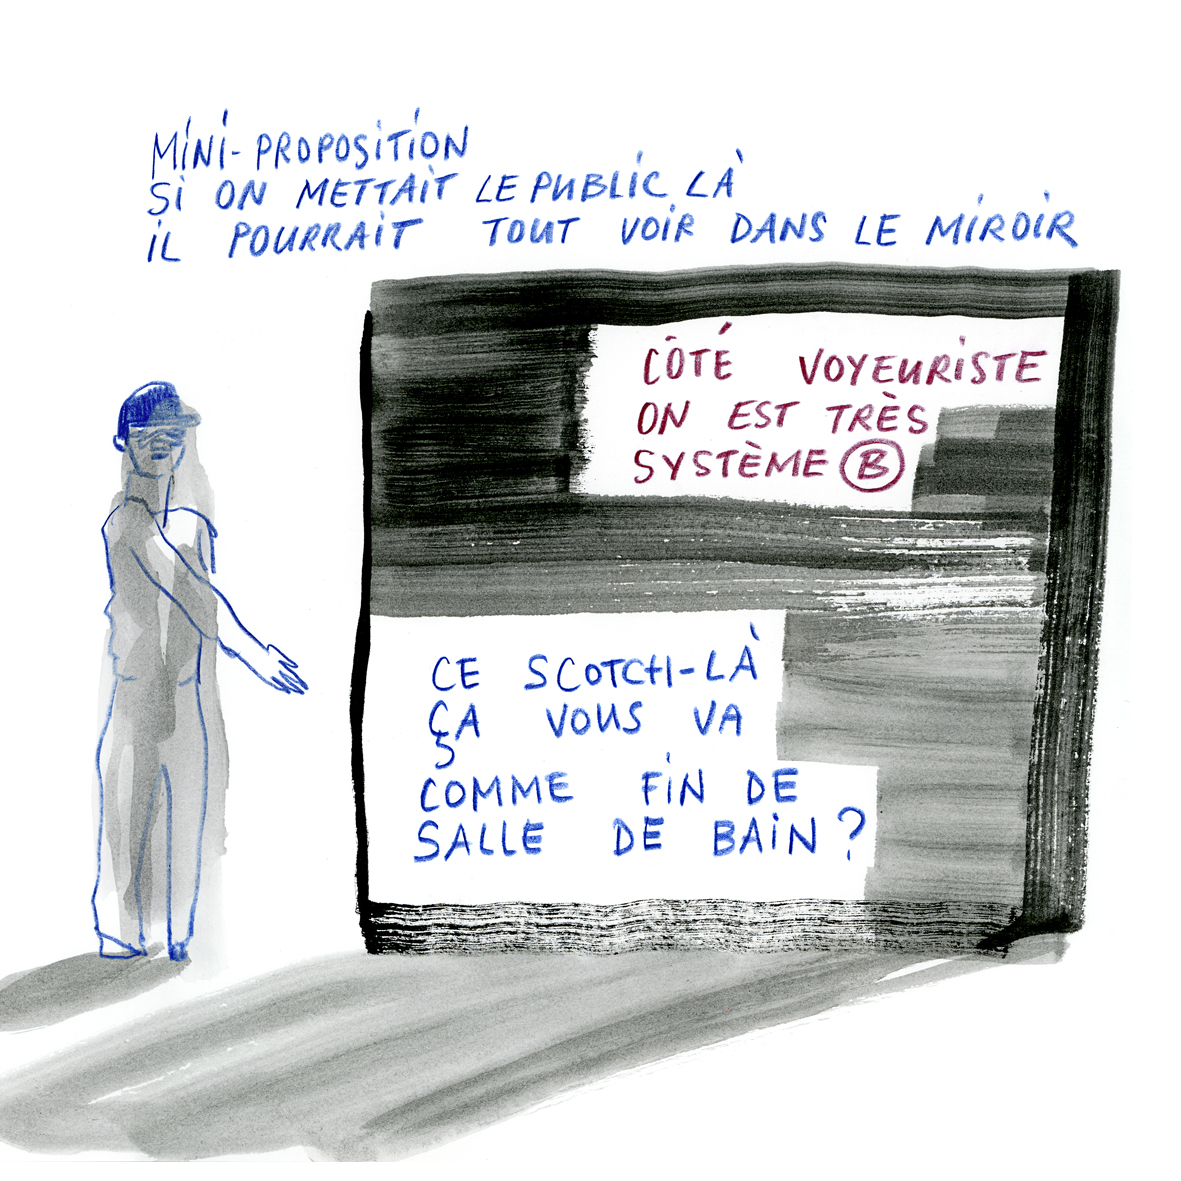 MINI-PROPOSITION
SI ON METTAIT LE PUBLIC LÀ
IL POURRAIT TOUT VOIR DANS LE MIROIR
CÔTÉ VOYEURISTE
ON EST TRÈS
SYSTÈME B
CE SCOTCH-LÀ
ÇA VOUS VA
COMME FIN DE
SALLE DE BAIN ?